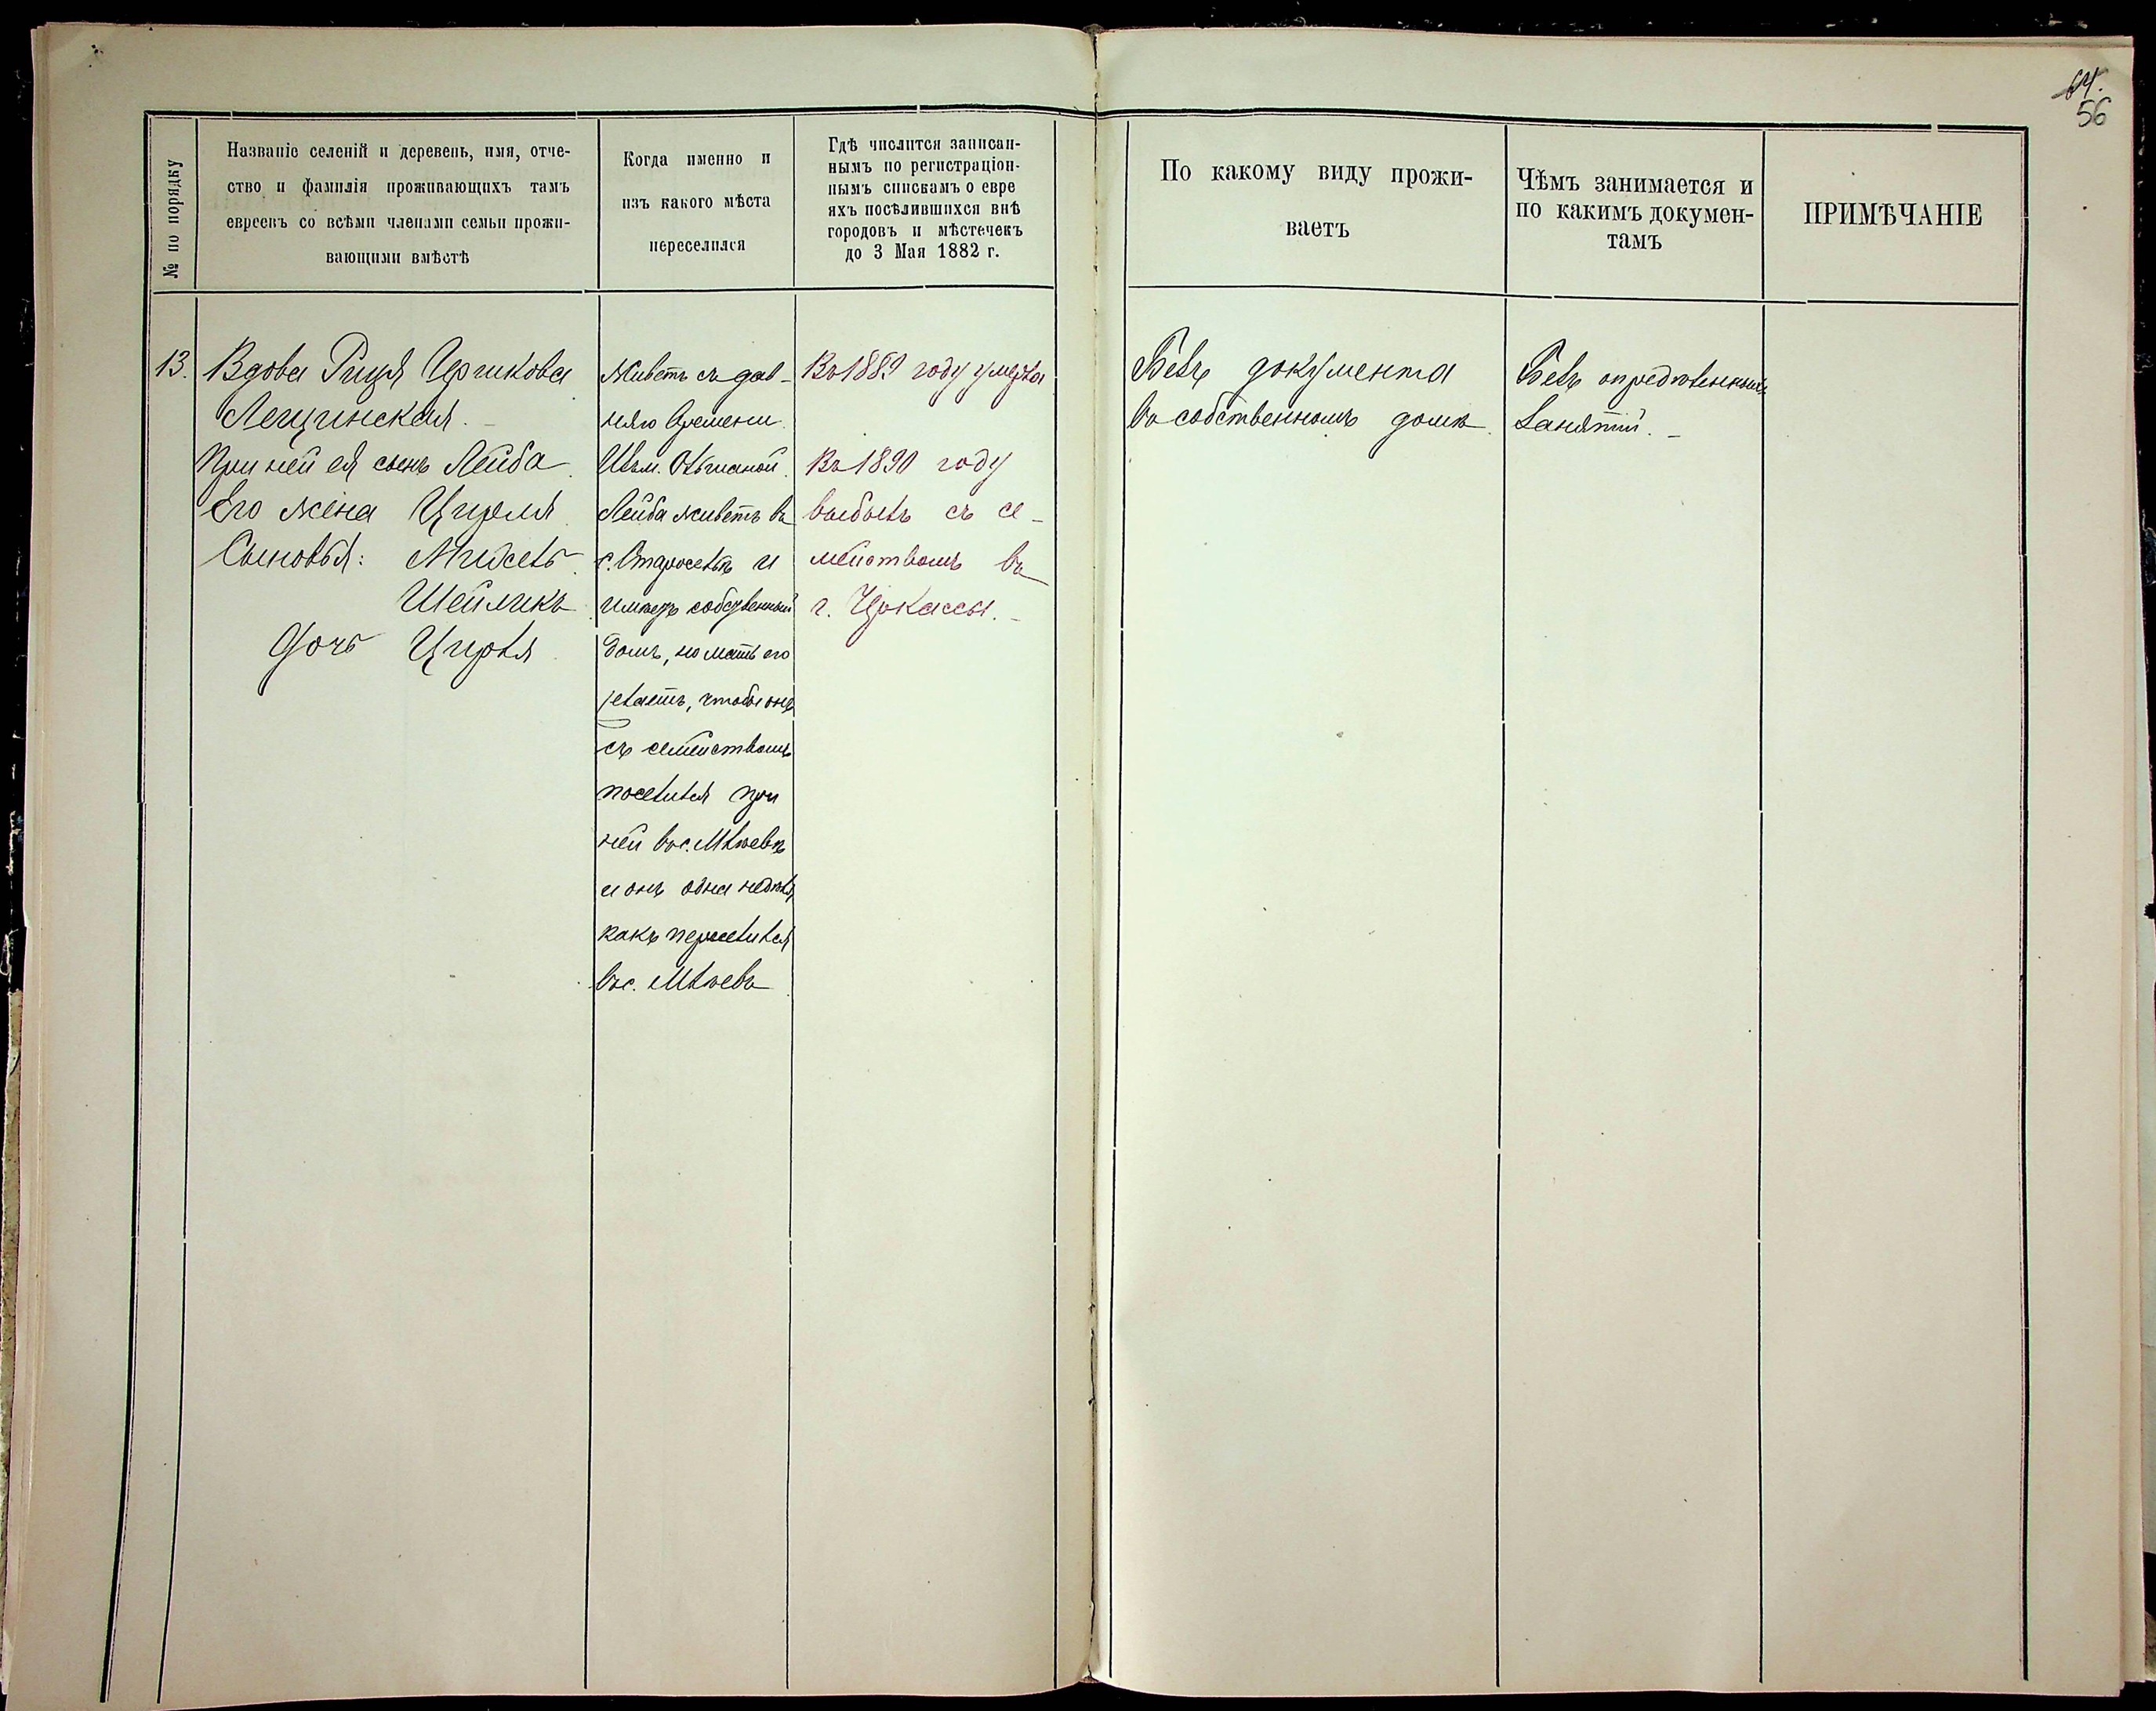 64.
56
№ по порядку
Названіе селеній и деревень, имя, отче-
ство и фамилія проживающихъ тамъ
евреевъ со всѣми членами семьи прожи-
вающими вмѣстѣ
Когда именно и
изъ какого мѣста
переселился
Гдѣ числится записан-
нымъ по регистраціон-
нымъ спискамъ о евре
яхъ посѣлившихся внѣ
городовъ и мѣстечекъ
до 3 Мая 1882 г.
По какому виду прожи-
ваетъ
Чѣмъ занимается и
по какимъ докумен-
тамъ
ПРИМѢЧАНІЕ
13.
Вдова Рися Ицкова
Лещинская. –
При ней ея сынъ Лейба
Его жена
Сыновья:
Шейликъ
Дочь Цирля
Живетъ съ дав-
няго времени
Изъ м. Ольшаной.
Лейба живетъ въ
с. Старосельѣ и
имѣетъ собственный
домъ, но мать его
желаетъ, чтобы онъ
съ семействомъ
поселился при
ней въ с. Млѣевѣ
и онъ одна недѣля
какъ переселился
въ с. Млѣевъ
Въ 1889 году умерла
Въ 1890 году
выбылъ съ се-
мействомъ въ
г. Черкассы. –
Безъ документа
въ собственномъ домѣ.
Безъ опредѣленныхъ
занятій. –